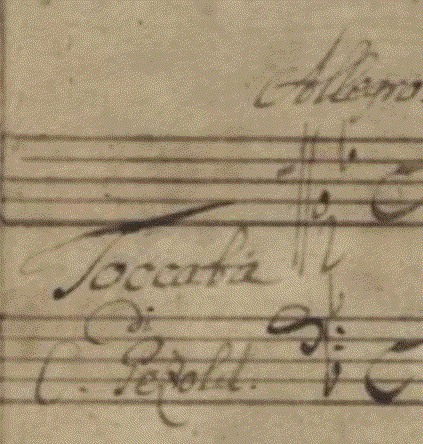 Allegro.
Toccata
di
C. Pezold.